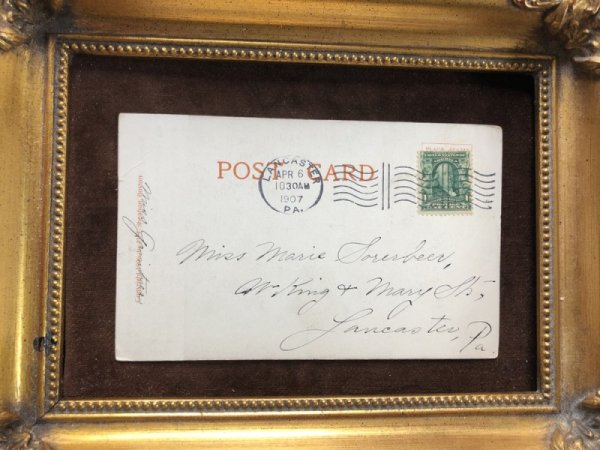 POST CARD
LANCASTER
APR 6
1030AM
1907
PA.
Miss Marie Sorerbeer,
W King & Mary Sts,
Lancaster,
Pa.